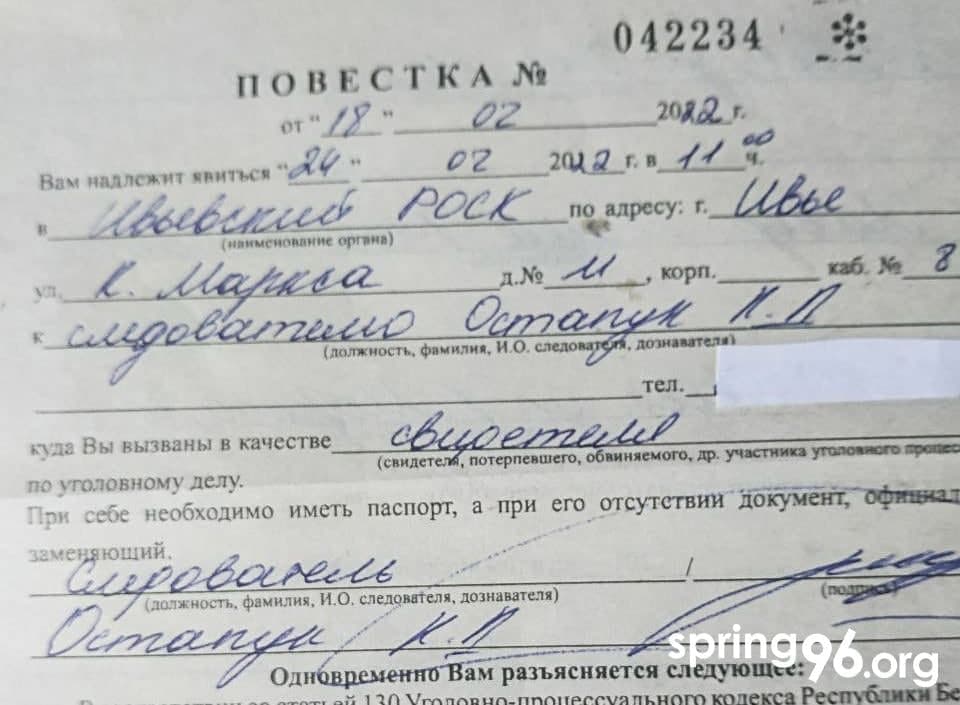 042234
ПОВЕСТКА №
от "18" 02 2022 г.
Вам надлежит явиться "24" 02 2022 г. в 11 00 ч.
в Ивьевский РОСК по адресу: г. Ивье
(наименование органа)
ул. К. Маркса д.№ 11, корп. каб. № 8
к следователю Остапук К.П
(должность, фамилия, И.О. следователя, дознавателя)
тел.
куда Вы вызваны в качестве свидетеля
(свидетеля, потерпевшего, обвиняемого, др. участника уголовного процес
по уголовному делу.
При себе необходимо иметь паспорт, а при его отсутствии документ, официал
заменяющий.
Следователь /
(должность, фамилия, И.О. следователя, дознавателя) (подпись)
Остапук К.П
spring96.org
Одновременно Вам разъясняется следующее:
статьей 130 Уголовно-процессуального кодекса Республики Бе